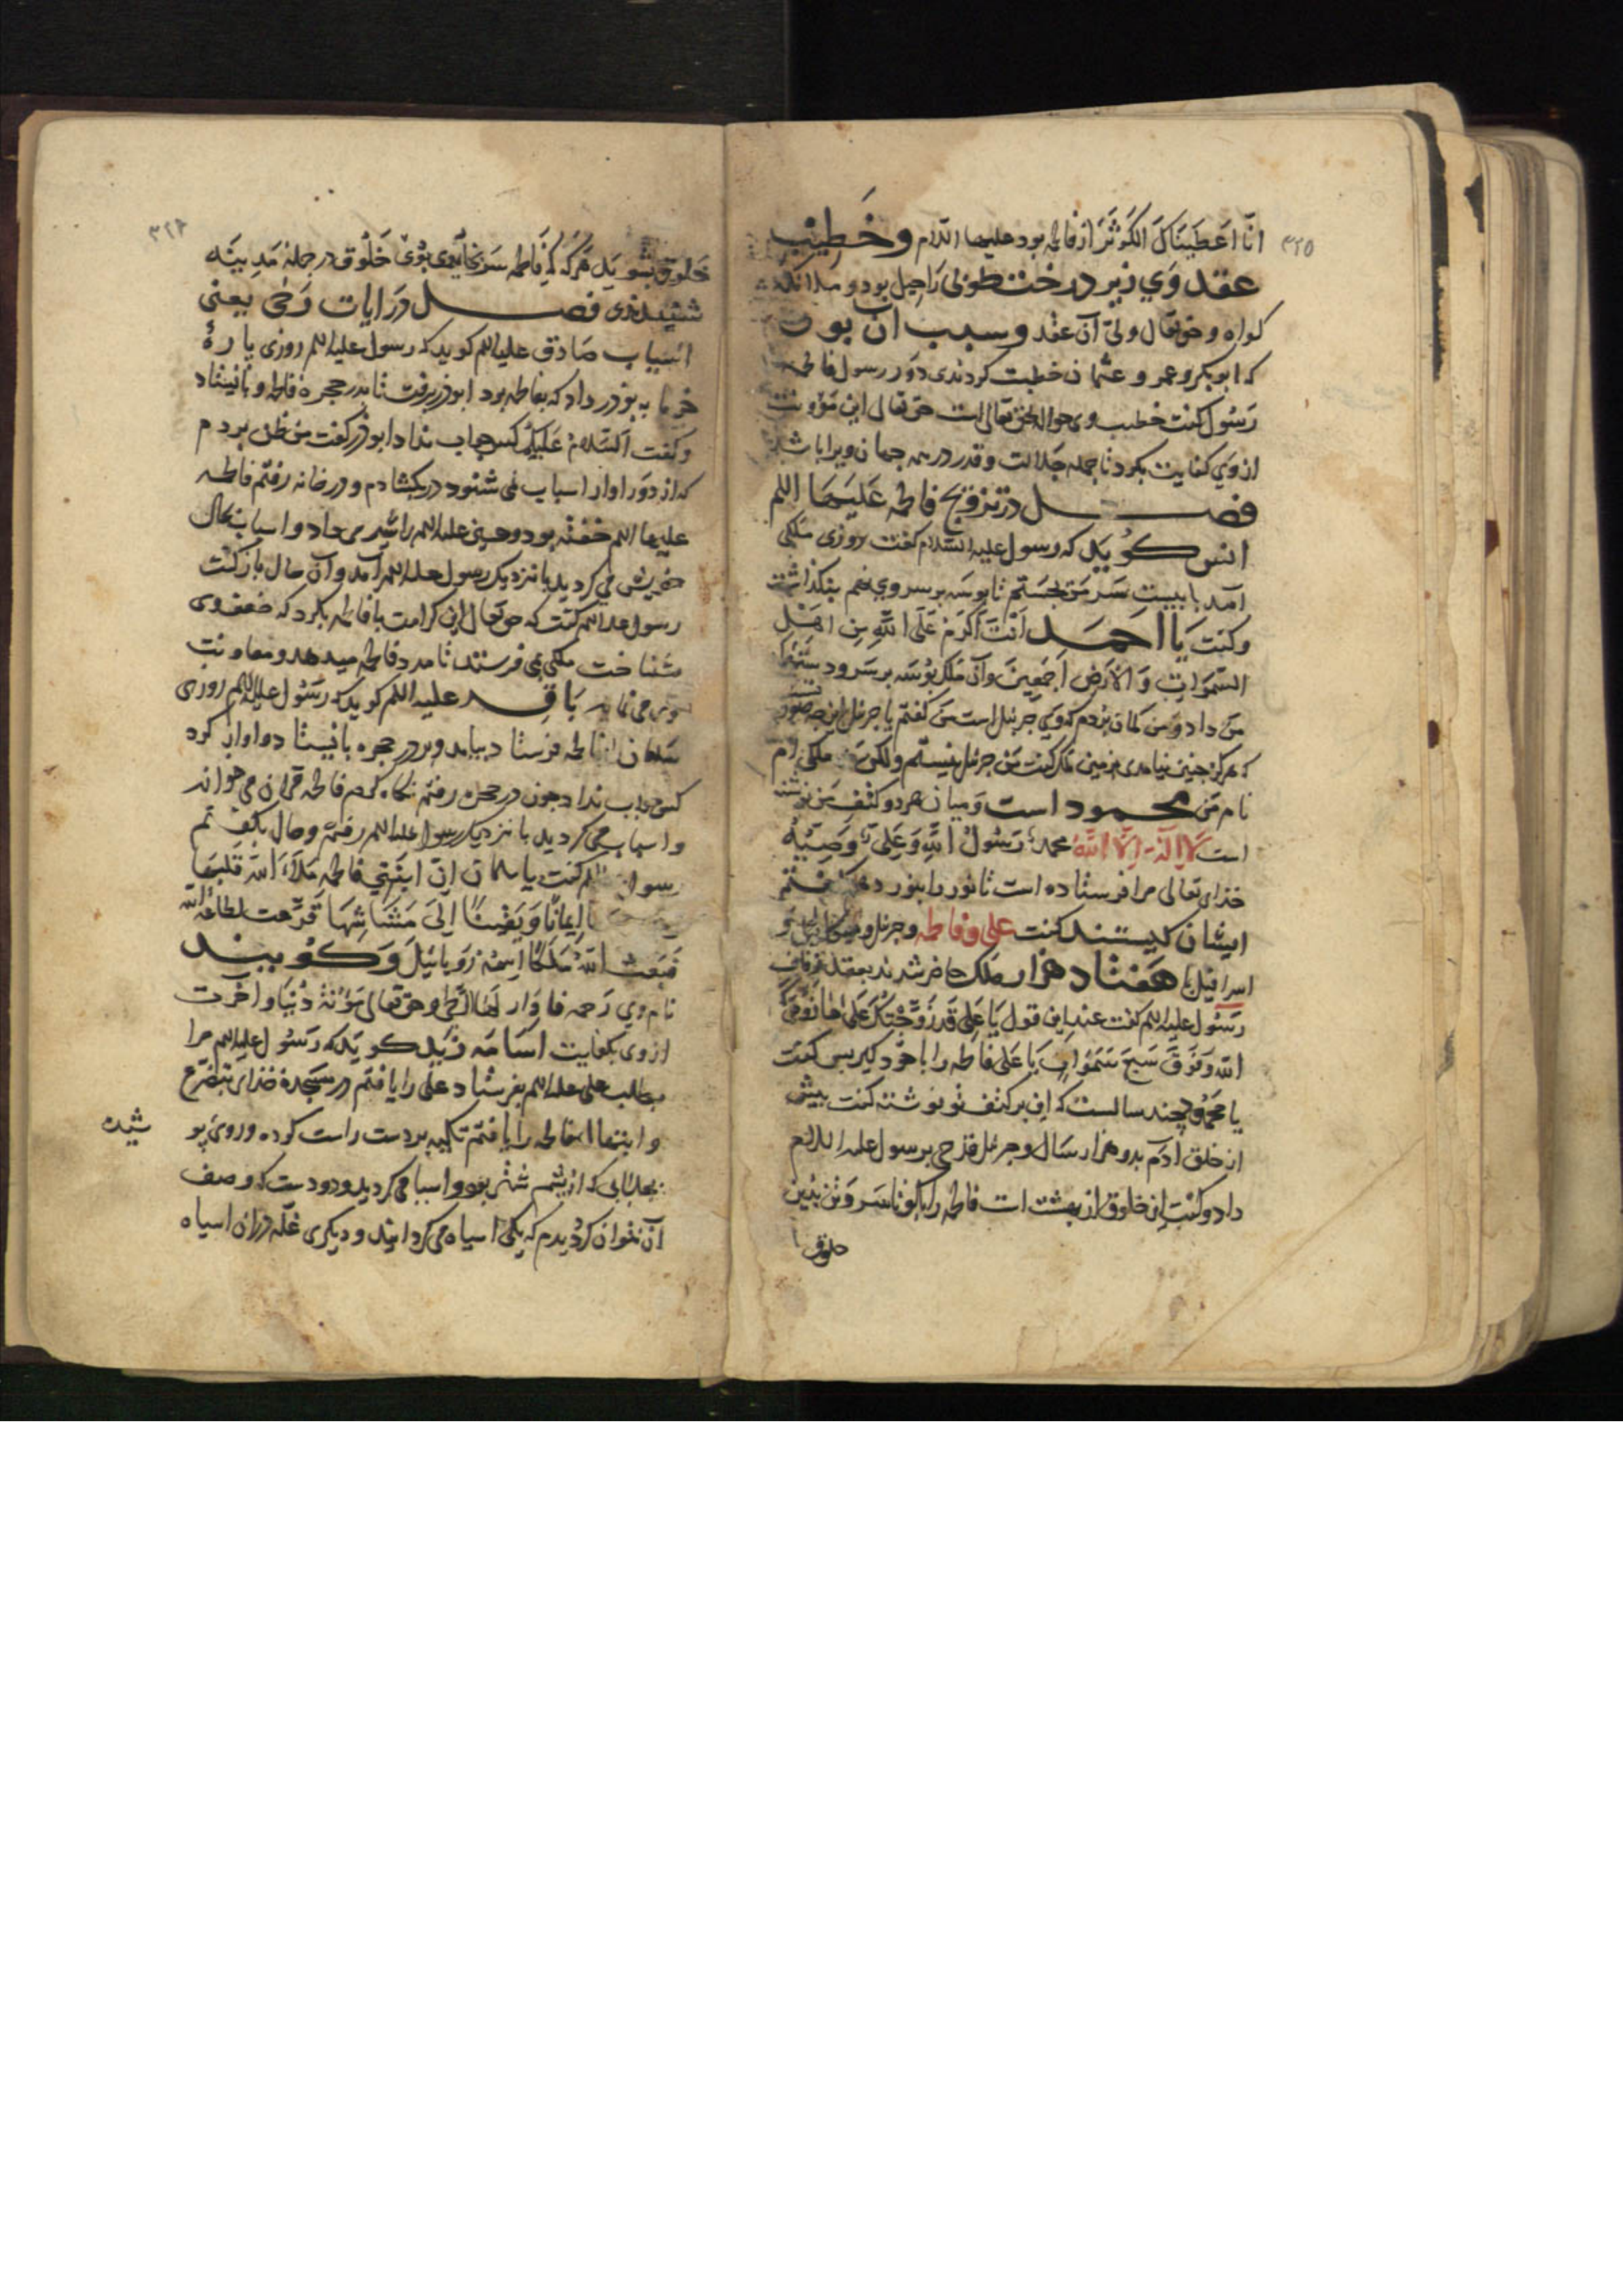 ۳۲۵
انّا اَعطَینَاکَ الکَوثَرَ از فاطمه بود علیها السّلام وخَطِیْب
عقد وَي زیر درخت طوبی رَاحیل بود و ملائکه
کواه و حق تعالی ولیّ آن عقد و سبب آن بوذ
که ابوبکر و عمر و عثمان خطبت کردندی دَوَر رسول فاطمه
رَسُول کفت خطب وی حواله بحق تعالی است حق تعالی این مؤونت
از وَي کفایت بکرد تا جمله جلالت و قدر در همه جهان ویرا باشد
فصــل در تزویج فاطمه عَلَیهَا السلم
انس کُویَد که رسول علیه السّلام کفت روزی ملکی
آمد با بیست سَر مَن بجستم تا بوسه بر سر وي نهم بنکذاشت
وکفت یَا احمَد اَنْتَ اَکرَمُ عَلَی اللّهِ مِن اهْل
السَّموَاتِ وَ الاَرضِ اَجمَعِینَ وآن ملک بُوسَه بر سَر و دستم
مَن داد و من کمان بردم که وَي جبرئل است مَن کفتم یا جبرئل این چه صورتست
که هرکز جنین نیامدی بر من ملک کفت من جبرئل نیستم ولکن ملکی ام
نام مَن محمود است وَ میان هر دو کتف من نوشته
است لا اله الا اللّه محمد رَسُولُ اللّهِ وَعَلِیّ وَصِیّهُ
خذای تعالی مرا فرستاده است تا نور را بنور دهم کفتم
ایشان کیستند کفت علی و فاطمه و جبرئل و میکائیل و
اسرافیل با هفتاد هزار ملک حاضر شدند بعقد زفاف
رَسُول علیه السلم کفت عند این قول یَا عَلِی قد زَوَّجْتُکَ عَلَی مَا زَوَّجَکَ
اللّه وَ فَوقَ سَبعَ سَمَوَاتٍ یَا عَلی فاطمه را با خود کیر بس کفت
یا محمود چند سالست که این بر کتف تو نوشته کفت بیش
از خلق ادَم بدو هزار سَال و جبرئل قدحی برسول علیه السلام
داد و کفت این خلوق از بهشت است فاطمه را بکو تا سَر و تن بدین
خلوق
۳۲۶
خَلوق بشویَد هَرکه که فَاطمه سَر بخاریدی بُوی خَلُوق در جمله مَدِینَه
شنیدندی فصــل دَر ایات رَحَی یعنی
اسیاب صَادق علیه السلم کوید که رسول علیه السلم روزی پارهٔ
خرما به بوذر داد که بفاطمه برد ابوذر برفت تا بدر حجرهٔ فاطمه و بایستاد
و کفت السَّلامُ عَلَیکُم کس جواب نداد ابوذر کفت من ظن بردم
که از دَور اواز اسیاب نمی شنود در بکشادم و در خانه رفتم فاطمه
علیها السلم خفته بود و حسین علیه السلم را شیر می داد و اسیاب بحال
خویش می کردید با نزدیک رسول علیه السلم آمد و آن حال باز کفت
رسول علیه السلم کفت که حق تعالی این کرامت با فاطمه بکرد که ضعف وی
شناخت ملکی می فرستد تا مدد فاطمه میدهد و معاونت
وی می نماید بَاقِــر علیه السلم کوید که رسُول علیه السلم روزی
سَلمان را بفاطمه فرستاد بیامد و بر در حجره بایستاد و اواز کرد
کس جواب نداد جون در حجره رفتم نکاه کردم فاطمه قران می خواند
و اسیاب می کردید با نزدیک رسول علیه السلم رفتم و حال بکفتم
رسول السلم کفت یا سلمان اِنّ ابنَتِي فاطمه مَلَأ اللّه قَلبَهَا
اِیمَانًا وَ یَقِینًا اِلَی مَشَاشِهَا تفَرَّغَت لطاعَة اللّه
فَبَعَثَ اللّهُ مَلَکًا اِسمُهُ زوبائیل وَ کُوینــد
نام وي رَحمه فادَار لَهَا الرَّحَی و حق تعالی مَؤُنَةُ دُنیَا و آخرت
از وی بکفایت اُسَامَه زَید کویَد که رَسُول علیه السلم مرا
بطلب علی علیه السلم بفرستاد علی را یافتم در سَجدهٔ خذای بتضرع
و ابتهال فاطمه را یافتم تکیه بر دست راست کرده و روی پو
شیده
بجلبابی که از پشم شتر بود و اسیا می کردید و دو دست که وصف
آن نتوان کرد دیدم که یکی اسیاه می کردانید و دیکری غلّه در ان اسیاه